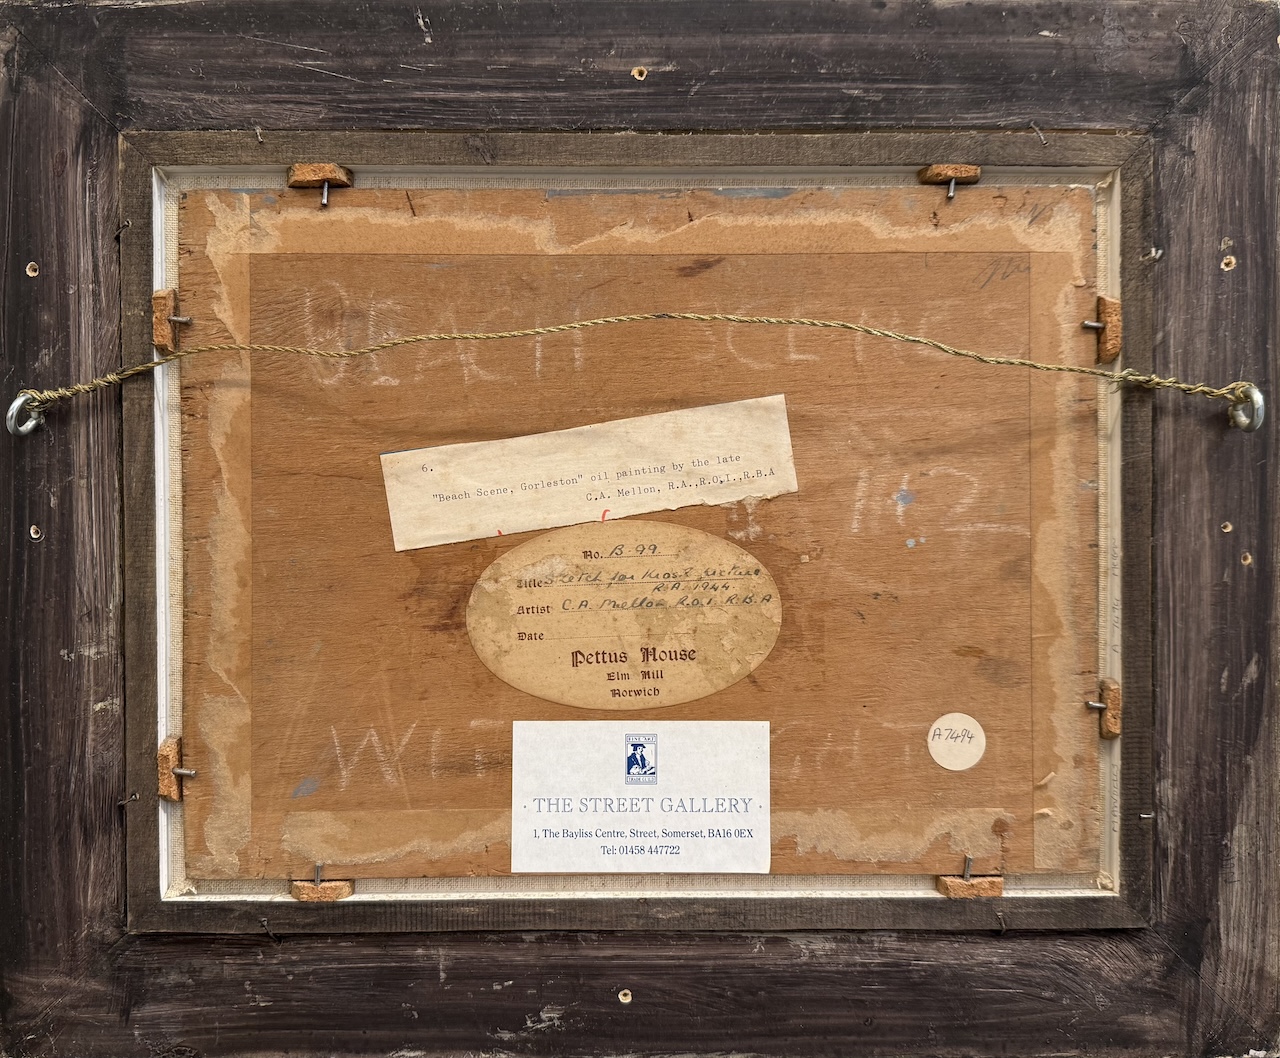 BEACH SCENE
6.
"Beach Scene, Gorleston" oil painting by the late
C.A. Mellon, R.A.,R.O.I.,R.B.A
No. B.99.
Title Sketch for picture
R.A. 1944.
Artist C.A. Mellon R.O.I. R.B.A
Date
Pettus House
Elm Hill
Norwich
A7494
FINE ART
TRADE GUILD
· THE STREET GALLERY ·
1, The Bayliss Centre, Street, Somerset, BA16 0EX
Tel: 01458 447722